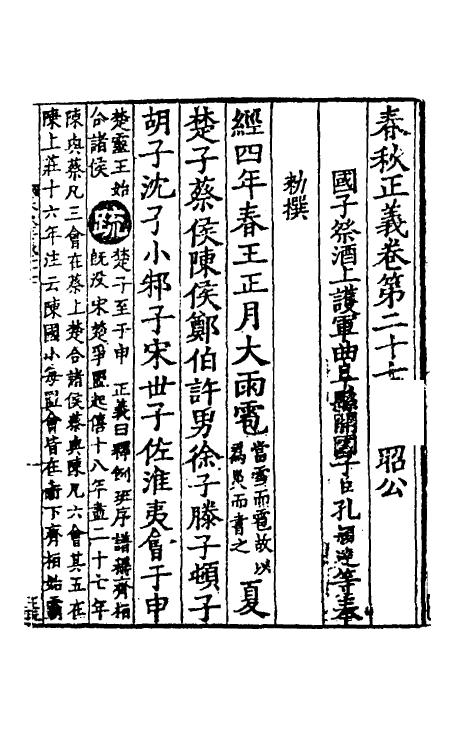 春秋正義卷第二十七 昭公
國子祭酒上護軍曲阜縣開國子臣孔穎達等奉
勑撰
經四年春王正月大雨雹當雪而雹故以為災而書之夏
楚子蔡侯陳侯鄭伯許男徐子滕子頓子
胡子沈子小邾子宋世子佐淮夷會于申
楚靈王始合諸侯疏楚子至于申 正義曰釋例班序譜稱齊桓
既没宋楚爭盟起僖十八年盡二十七年
陳與蔡凡三會在蔡上楚合諸侯蔡與陳凡六會其五在
陳上莊十六年注云陳國小每盟會皆在衛下齊桓始霸